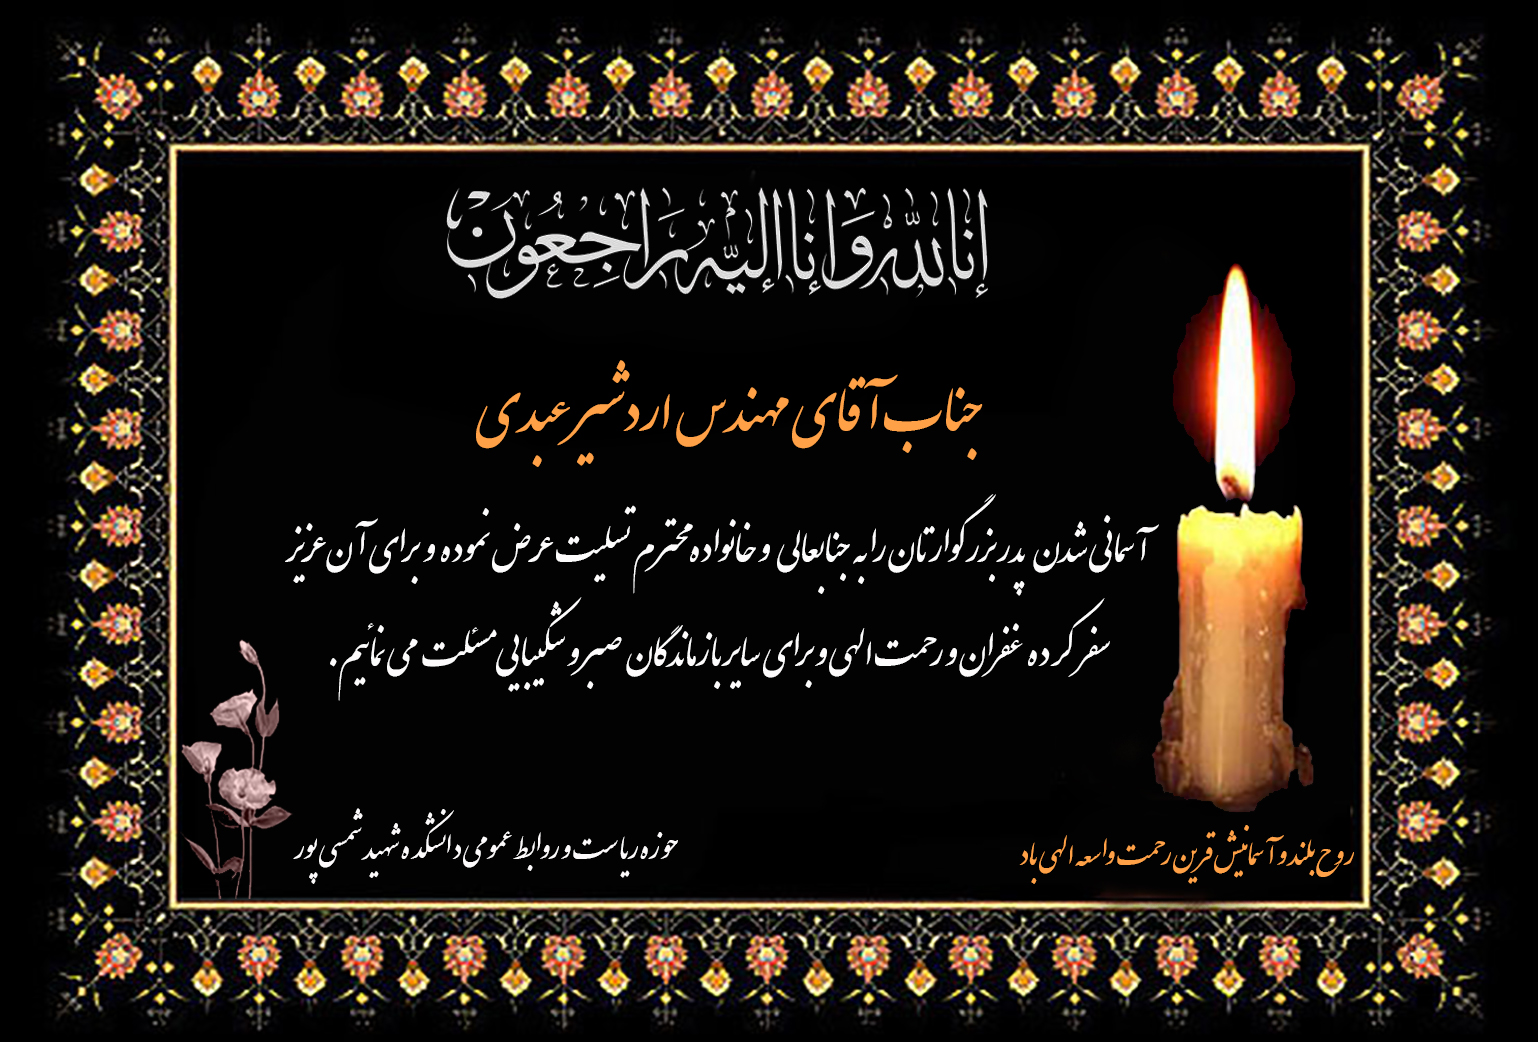 انا لله و انا الیه راجعون
جناب آقای مهندس اردشیر عبدی
آسمانی شدن پدر بزرگوارتان را به جنابعالی و خانواده محترم تسلیت عرض نموده و برای آن عزیز
سفر کرده غفران و رحمت الهی و برای سایر بازماندگان صبر و شکیبایی مسئلت می نمائیم.
روح بلند و آسمانیش قرین رحمت واسعه الهی باد
حوزه ریاست و روابط عمومی دانشکده شهید شمسی پور